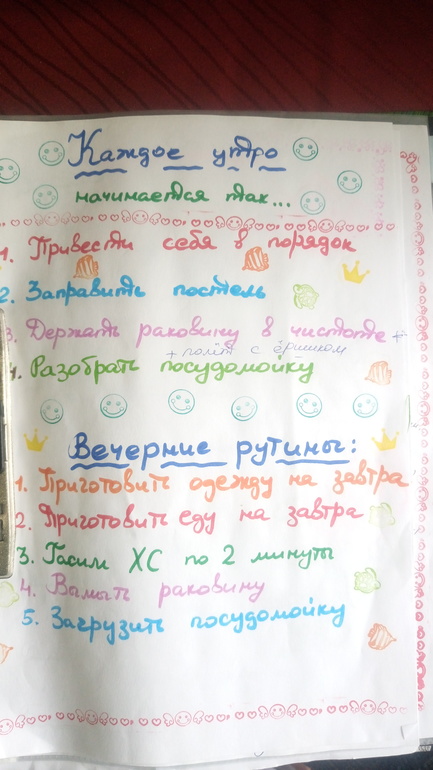 Каждое утро
начинается так...
1. Привести себя в порядок
2. Заправить постель
3. Держать раковину в чистоте +
+ полёт с ёршиком
4. Разобрать посудомойку
Вечерние рутины:
1. Приготовить одежду на завтра
2. Приготовить еду на завтра
3. Гасим ХС по 2 минуты
4. Вымыть раковину
5. Загрузить посудомойку